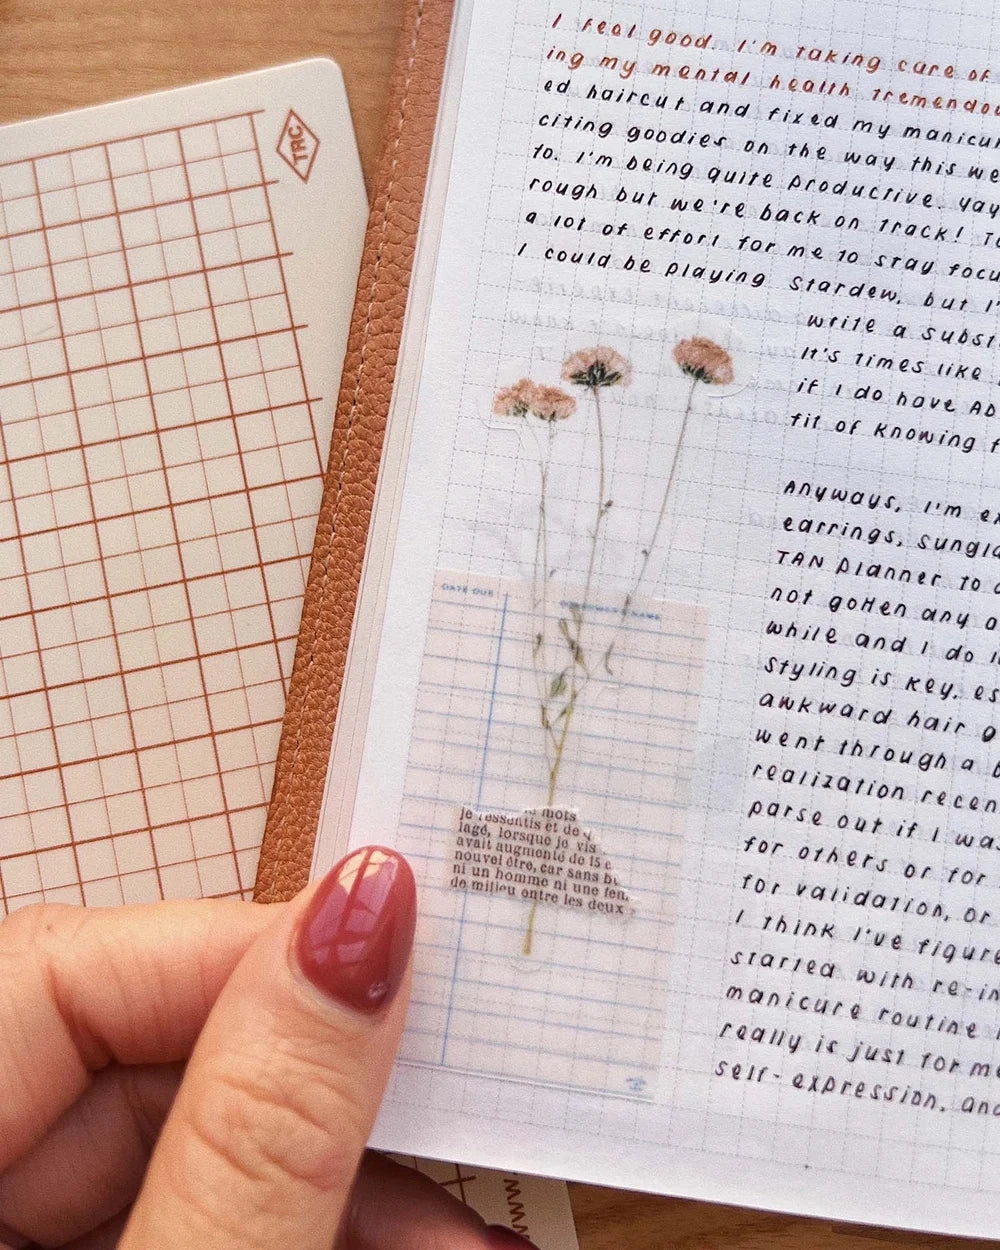 TRC
I feel good. I'm taking care of
ing my mental health tremendou
ed haircut and fixed my manicur
citing goodies on the way this we
to. I'm being quite productive. yay
rough but we're back on track! To
a lot of effort for me to stay focu
I could be playing Stardew, but I'
write a subst
It's times like
if I do have AD
fit of knowing f
Anyways, I'm ex
earrings, sungla
TAN planner to
not gotten any a
while and I do
styling is key, es
awkward hair g
went through a b
realization recen
parse out if I was
for others or for
for validation, or
I think I've figure
started with re-in
manicure routine
really is just for me
self-expression, and
DATE DUE
NAME
mots
je ressentis et de
lagé, lorsque je vis
avait augmenté de 15 c
nouvel être, car sans
ni un homme ni une fem
de milieu entre les deux